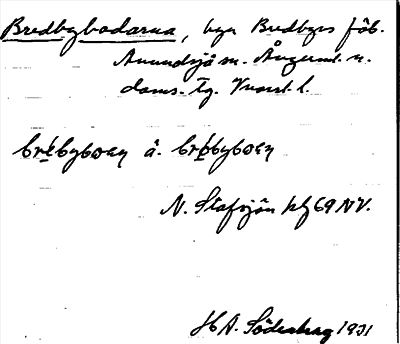 Bredbybodarna, byn Bredbyns fäb.
Anundsjö sn. Ångerml. n.
doms. Tg. Vnorrl. l.
brébyboan å. bröbyboan
N. Stafsjön blf 69 NV.
H A. Söderberg 1931